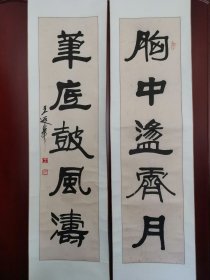 胸中盪霽月
筆底鼓風濤